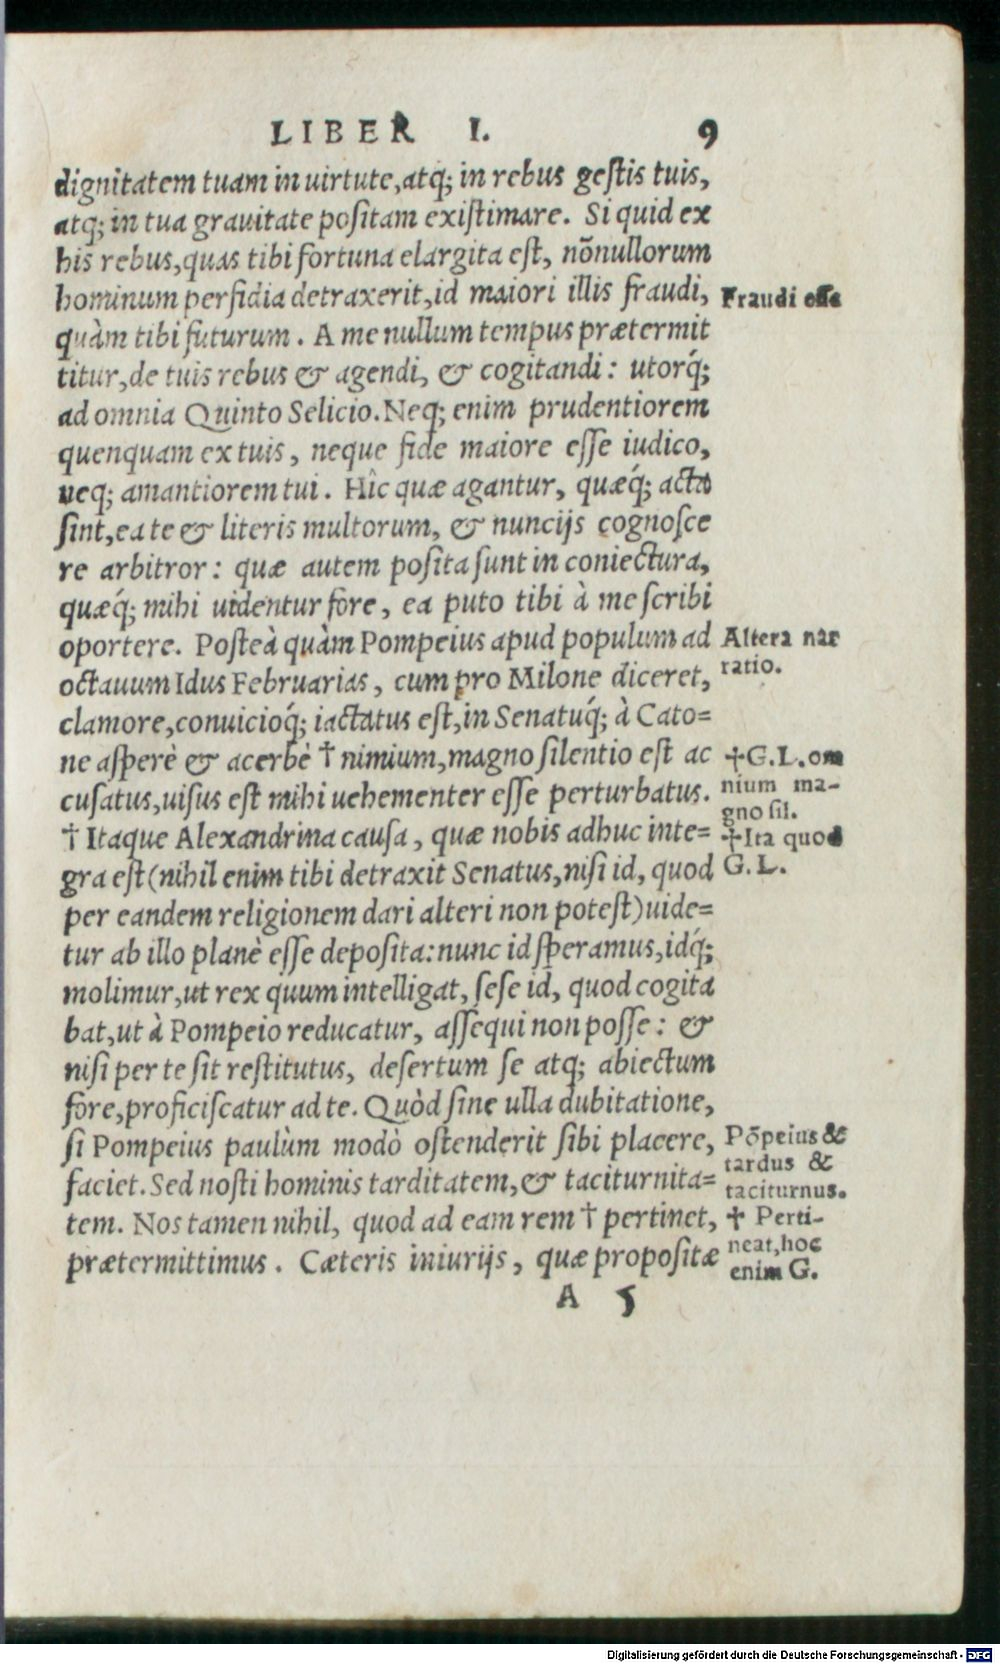 LIBER I. 9
dignitatem tuam in uirtute, atq; in rebus gestis tuis,
atq; in tua grauitate positam existimare. Si quid ex
his rebus, quas tibi fortuna elargita est, nōnullorum
hominum perfidia detraxerit, id maiori illis fraudi,
Fraudi esse
quàm tibi futurum. A me nullum tempus prætermit
titur, de tuis rebus & agendi, & cogitandi: utorq́;
ad omnia Quinto Selicio. Neq; enim prudentiorem
quenquam ex tuis, neque fide maiore esse iudico,
neq; amantiorem tui. Hîc quæ agantur, quæq́; acta
sint, ea te & literis multorum, & nuncijs cognosce
re arbitror: quæ autem posita sunt in coniectura,
quæq́; mihi uidentur fore, ea puto tibi à me scribi
oportere. Posteà quàm Pompeius apud populum ad
Altera nar
octauum Idus Februarias, cum pro Milone diceret,
ratio.
clamore, conuicioq́; iactatus est, in Senatuq́; à Cato=
ne asperè & acerbè † nimium, magno silentio est ac
†G.L. om
cusatus, uisus est mihi uehementer esse perturbatus.
nium ma-
gno sil.
† Itaque Alexandrina causa, quæ nobis adhuc inte=
†Ita quod
gra est (nihil enim tibi detraxit Senatus, nisi id, quod
G.L.
per eandem religionem dari alteri non potest) uide=
tur ab illo planè esse deposita: nunc id speramus, idq́;
molimur, ut rex quum intelligat, sese id, quod cogita
bat, ut à Pompeio reducatur, assequi non posse: &
nisi per te sit restitutus, desertum se atq; abiectum
fore, proficiscatur ad te. Quòd sine ulla dubitatione,
si Pompeius paulùm modò ostenderit sibi placere,
Põpeius &
tardus &
faciet. Sed nosti hominis tarditatem, & taciturnita=
taciturnus.
tem. Nos tamen nihil, quod ad eam rem † pertinet,
† Perti-
prætermittimus. Cæteris iniurijs, quæ propositæ
neat, hoc
enim G.
A 5
Digitalisierung gefördert durch die Deutsche Forschungsgemeinschaft - DFG